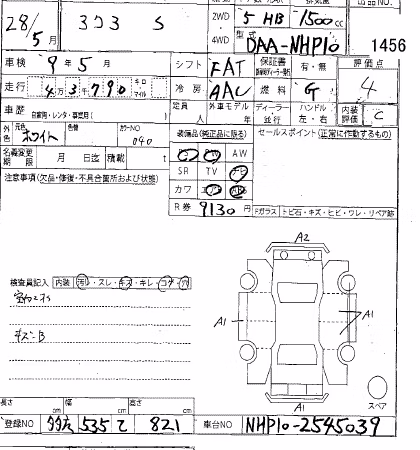 28/5月 ヨコヨ S
2WD 5 HB 1500cc
4WD 型式 DAA-NHP10 1456
車検 9年5月 シフト FAT 保証書 有・無 評価点
走行 43790 キロ マイル 冷房 AAC 燃料 G 4
車歴 自家用・レンタ・事業用( ) 定員 人 外車モデル 年 ディーラー 並行 ハンドル 左・右 内装評価 C
外色 元色 ホワイト 色替 カラーNO 040 装備品(純正品に限る) セールスポイント(正常に作動するもの)
AW
名義変更期限 月 日迄 積載 t SR TV ナビ
注意事項(欠品・修復・不具合箇所および状態) カワ
R券 9130円 Fガラス トビ石・キズ・ヒビ・ワレ・リペア跡
A2
検査員記入 内装 汚レ・スレ・キズ・キレ・コゲ・穴
A1 A1
キズ・B
A1 スペア
長さ cm 幅 cm 高さ cm
登録NO 535 て 821 車台NO NHP10-2545039